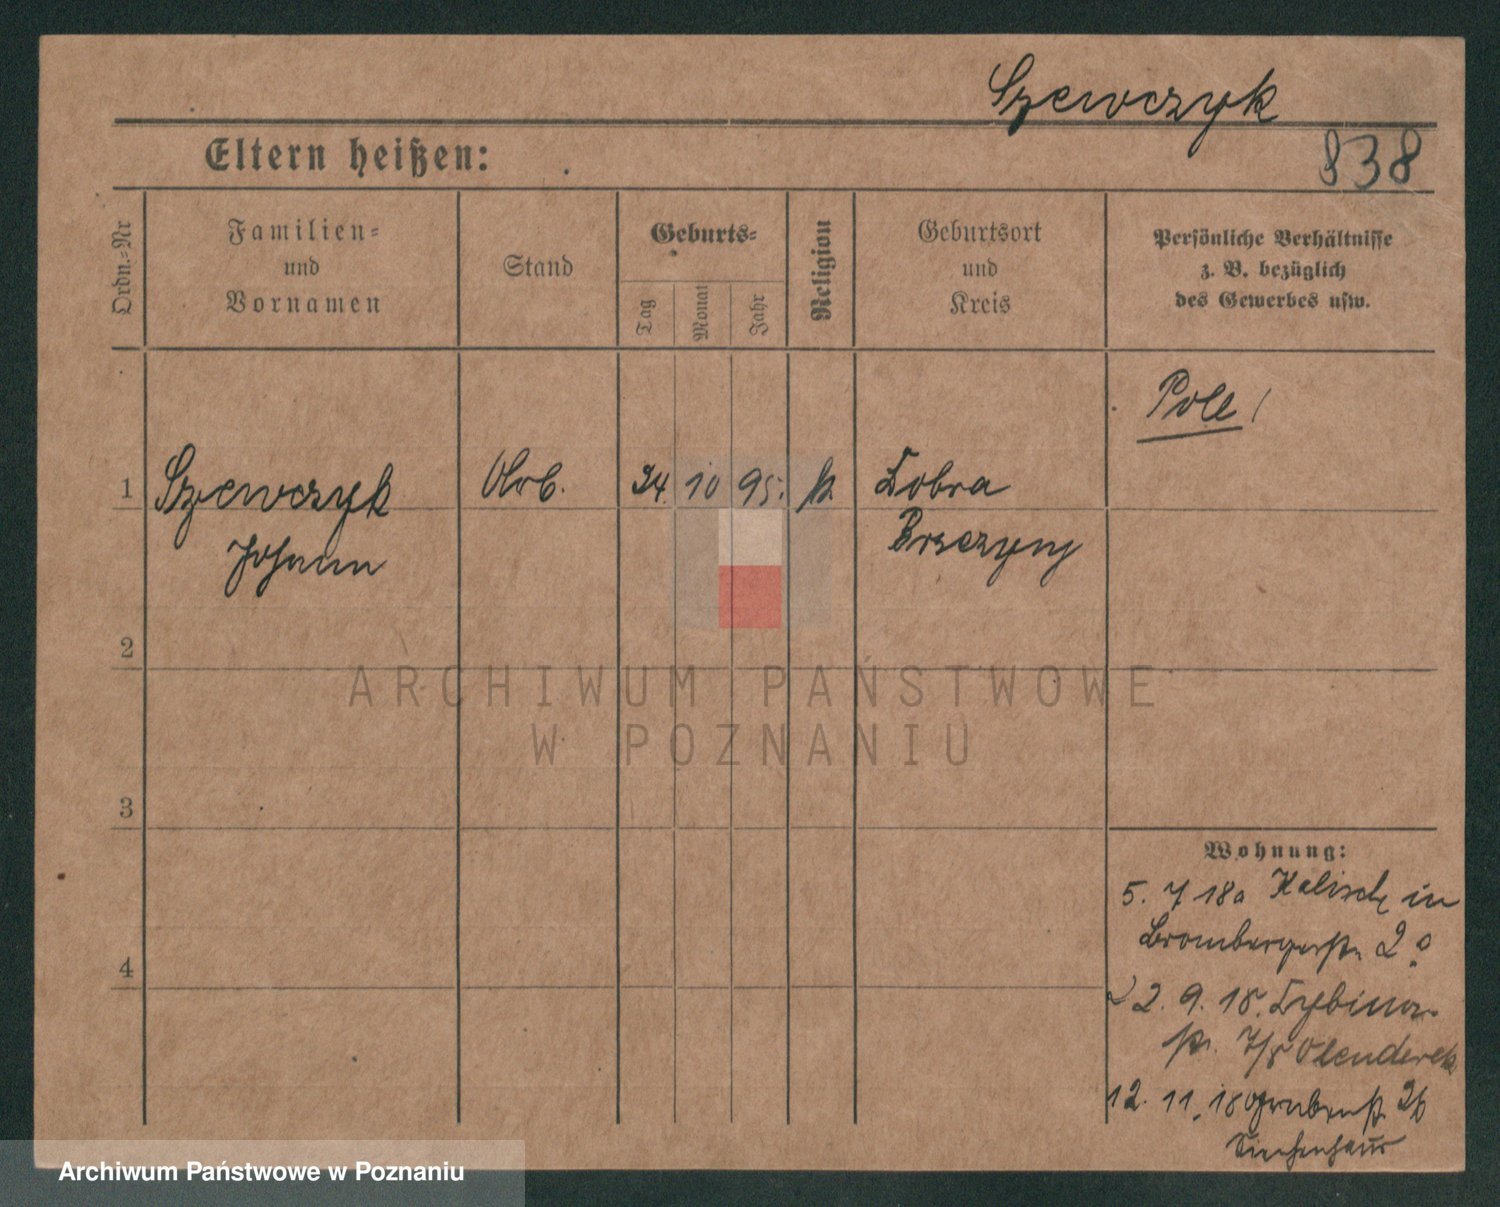 Szewczyk
838
Eltern heißen:
Ordn.=Nr
Familien=
und
Vornamen
Stand
Geburts=
Tag
Monat
Jahr
Religion
Geburtsort
und
Kreis
Persönliche Verhältnisse
z. B. bezüglich
des Gewerbes usw.
Pole!
1
Szewczyk
Arb.
24. 10 95.
k.
Dobra
Johann
Brzeziny
2
ARCHIWUM PAŃSTWOWE
W POZNANIU
3
Wohnung:
5. 7 18 Kalisch in
Brombergerstr. 2
4
22. 9. 18. Cybina-
str. 7/8 Olenderek
12. 11. 18 Grabenstr. 26
Siechenhaus
Archiwum Państwowe w Poznaniu